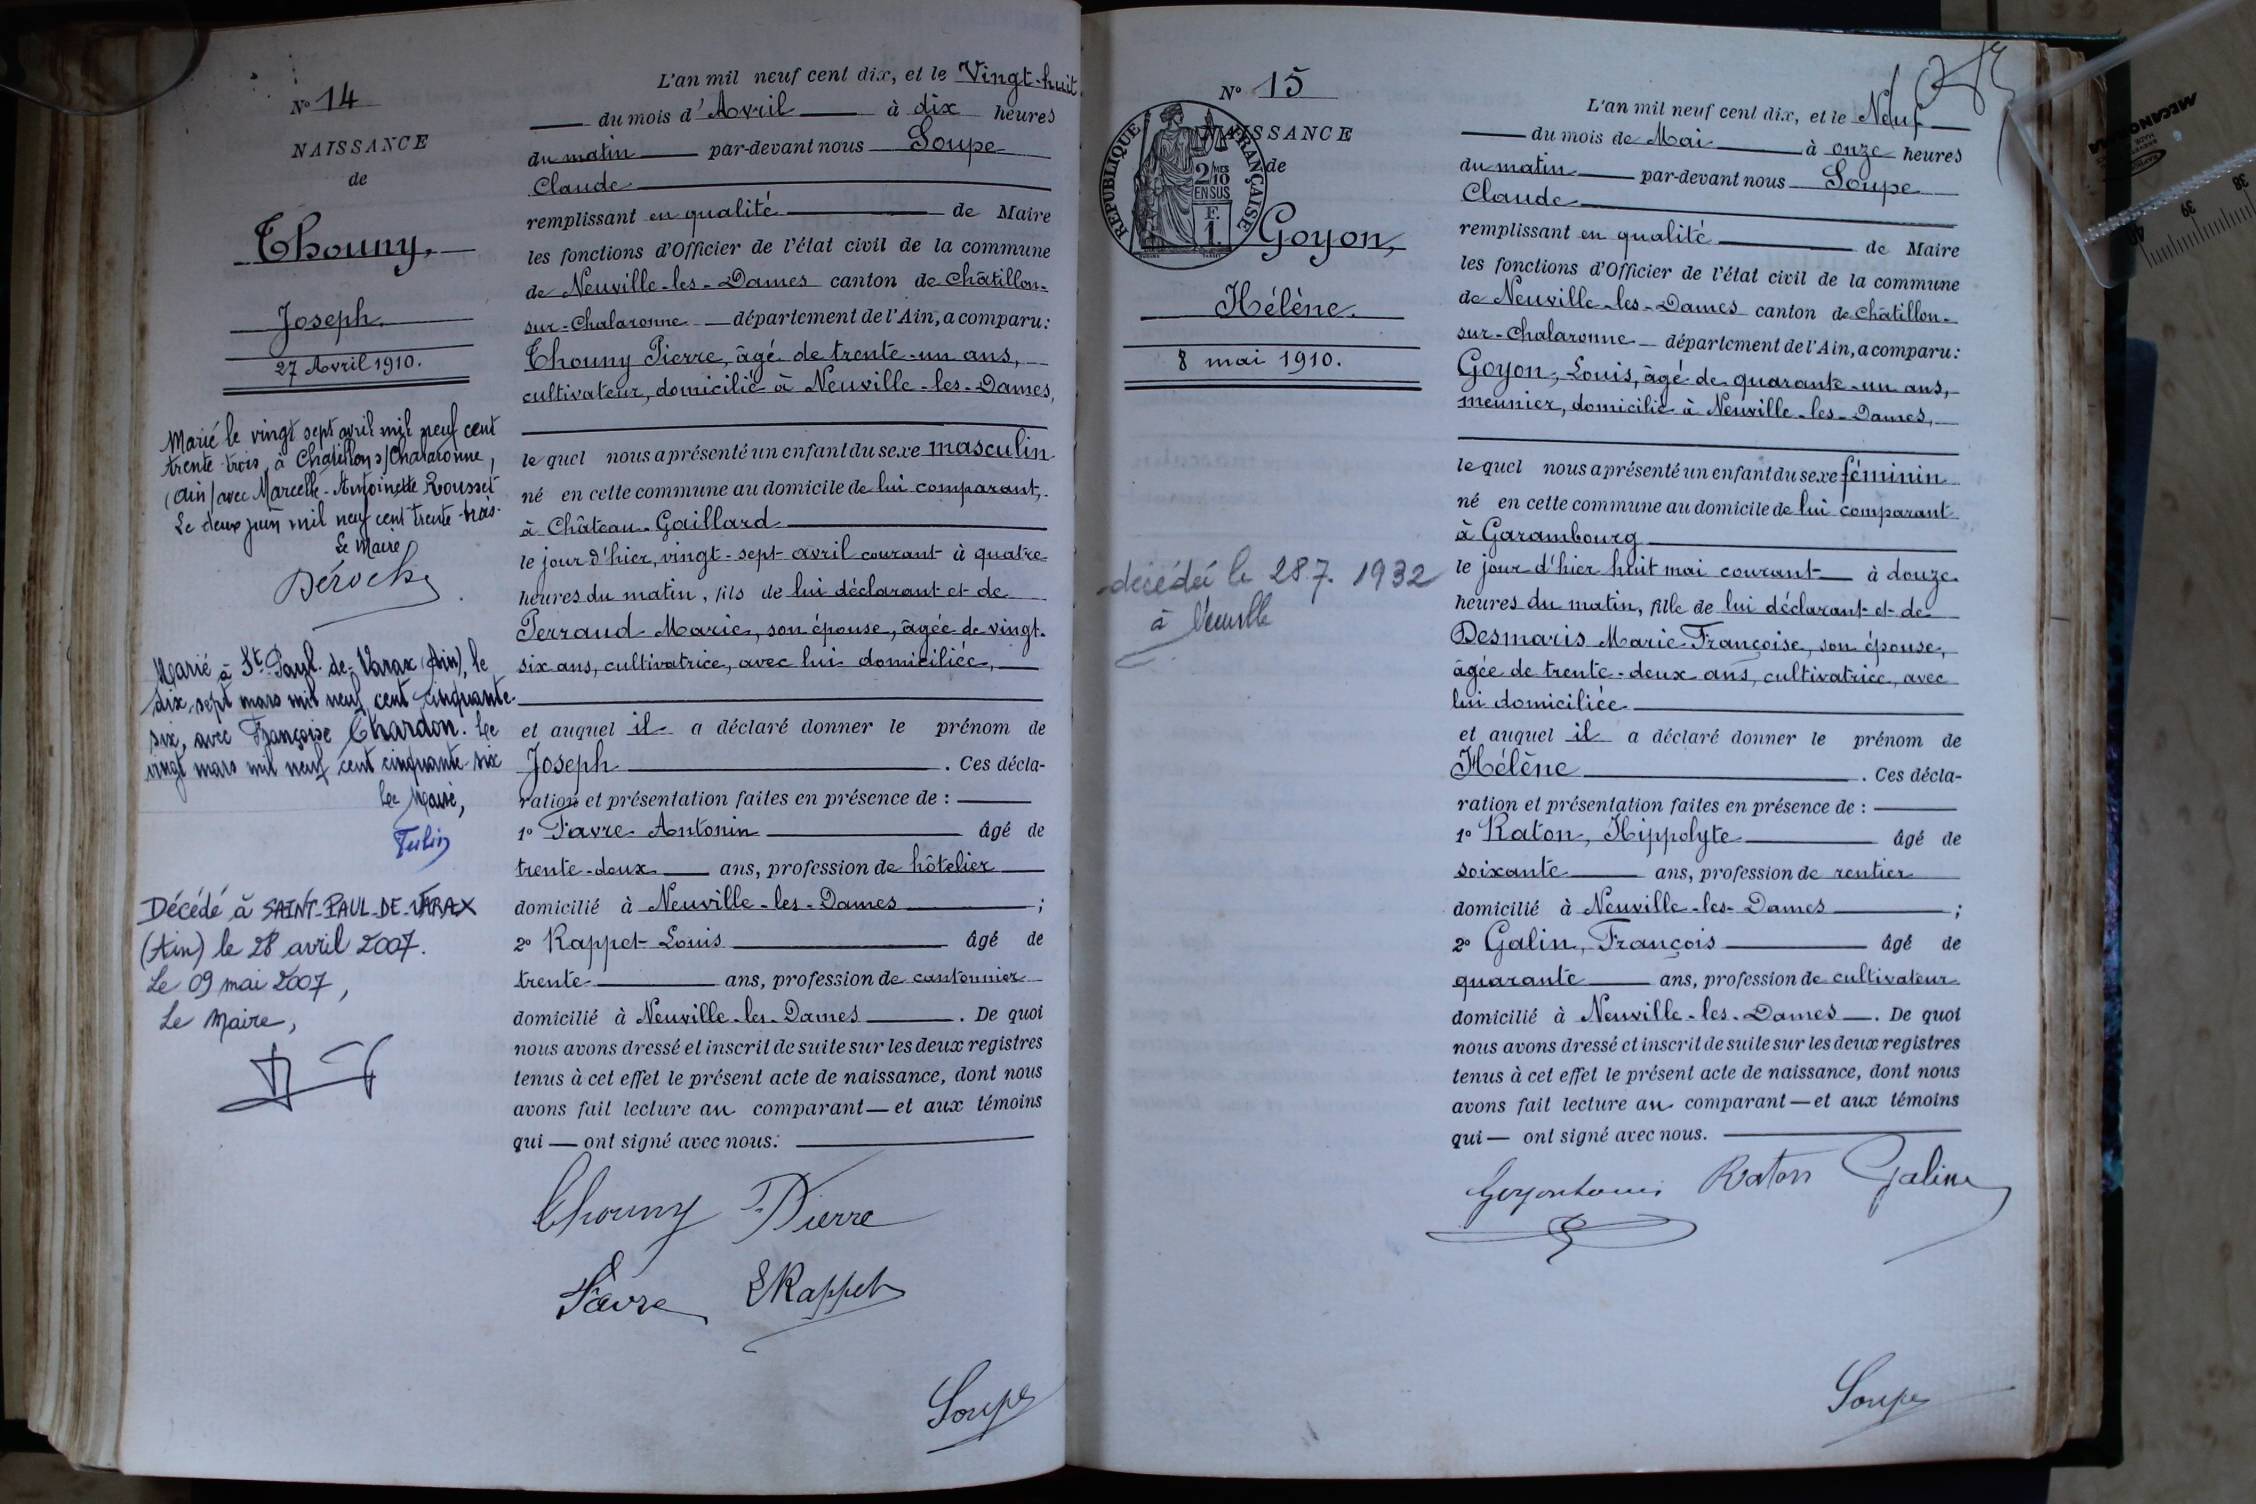 N° 14
NAISSANCE
de
Thouny,
Joseph.
27 Avril 1910.
Marié le vingt sept avril mil neuf cent
trente trois, à Chatillon s/Chalaronne,
(Ain) avec Marcelle-Antoinette Rousset
Le deux juin mil neuf cent trente-trois.
Le Maire
Marié à St Paul-de-Varax (Ain), le
dix-sept mars mil neuf cent cinquante-
six, avec Françoise Chardon. Le
vingt mars mil neuf cent cinquante-six
Le Maire,
Décédé à SAINT-PAUL-DE-VARAX
(Ain) le 28 avril 2007.
Le 09 mai 2007,
Le Maire,
L'an mil neuf cent dix, et le Vingt-huit
du mois d'Avril à dix heures
du matin par-devant nous Soupe
Claude
remplissant en qualité de Maire
les fonctions d'Officier de l'état civil de la commune
de Neuville-les-Dames canton de Châtillon-
sur-Chalaronne département de l'Ain, a comparu:
Thouny Pierre, âgé de trente-un ans,
cultivateur, domicilié à Neuville-les-Dames,
le quel nous a présenté un enfant du sexe masculin
né en cette commune au domicile de lui comparant,
à Château-Gaillard
le jour d'hier, vingt-sept avril courant à quatre
heures du matin, fils de lui déclarant et de
Perraud Marie, son épouse, âgée de vingt-
six ans, cultivatrice, avec lui domiciliée,
et auquel il a déclaré donner le prénom de
Joseph. Ces décla-
ration et présentation faites en présence de :
1° Favre Antonin âgé de
trente-deux ans, profession de hôtelier
domicilié à Neuville-les-Dames ;
2° Rappet Louis âgé de
trente ans, profession de cantonnier
domicilié à Neuville-les-Dames. De quoi
nous avons dressé et inscrit de suite sur les deux registres
tenus à cet effet le présent acte de naissance, dont nous
avons fait lecture au comparant — et aux témoins
qui — ont signé avec nous.
Thouny Pierre
Favre Rappet
Soupe
N° 15
NAISSANCE
de
RÉPUBLIQUE FRANÇAISE
2 MES
10
EN SUS
F.
1
Goyon,
Hélène.
8 mai 1910.
décédée le 28.7.1932
à Neuville
L'an mil neuf cent dix, et le Neuf
du mois de Mai à onze heures
du matin par-devant nous Soupe
Claude
remplissant en qualité de Maire
les fonctions d'Officier de l'état civil de la commune
de Neuville-les-Dames canton de Châtillon-
sur-Chalaronne département de l'Ain, a comparu:
Goyon, Louis, âgé de quarante-un ans,
meunier, domicilié à Neuville-les-Dames,
le quel nous a présenté un enfant du sexe féminin
né en cette commune au domicile de lui comparant
à Garambourg
le jour d'hier huit mai courant à douze
heures du matin, fille de lui déclarant et de
Desmaris Marie-Françoise, son épouse,
âgée de trente-deux ans, cultivatrice, avec
lui domiciliée
et auquel il a déclaré donner le prénom de
Hélène. Ces décla-
ration et présentation faites en présence de :
1° Raton, Hippolyte âgé de
soixante ans, profession de rentier
domicilié à Neuville-les-Dames ;
2° Galin, François âgé de
quarante ans, profession de cultivateur
domicilié à Neuville-les-Dames. De quoi
nous avons dressé et inscrit de suite sur les deux registres
tenus à cet effet le présent acte de naissance, dont nous
avons fait lecture au comparant — et aux témoins
qui — ont signé avec nous.
Goyon Louis Raton Galin
Soupe
MECANORMA
38
39
40